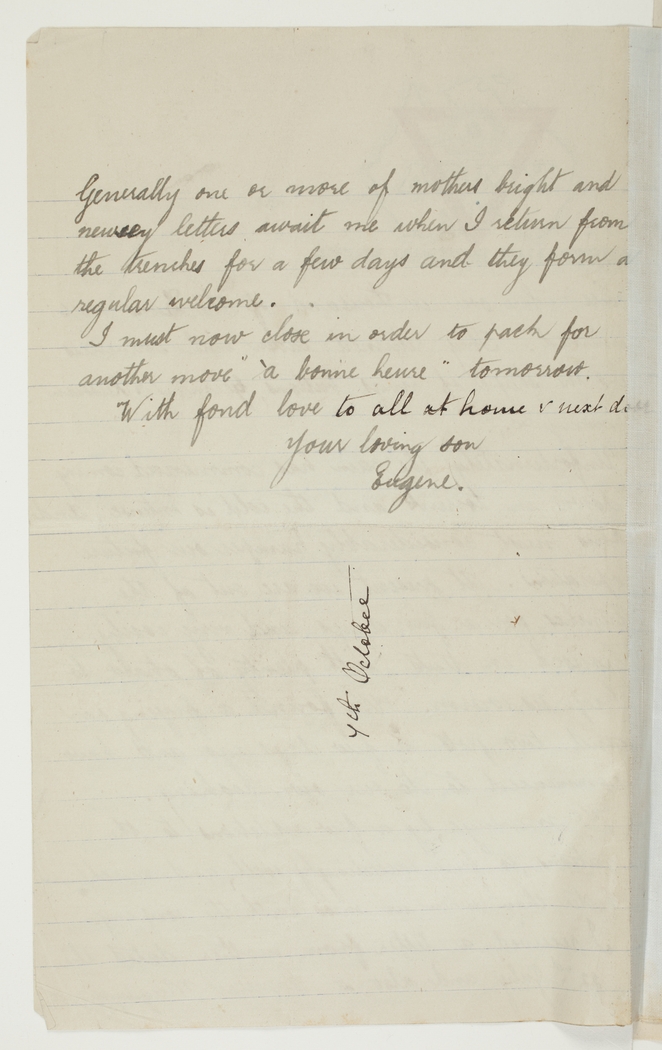 Generally one or more of mothers bright and
newsey letters await me when I return from
the trenches for a few days and they form a
regular welcome.
I must now close in order to pack for
another move "à bonne heure" tomorrow.
With fond love to all at home & next
Your loving son
Eugene.
7th October